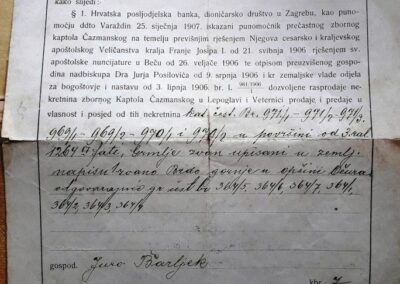 kako slijedi:
§ 1. Hrvatska posljodjelska banka, dioničarsko društvo u Zagrebu, kao puno-
moćju ddto Varaždin 25. siječnja 1907. iskazani punomoćnik prečastnog zbornog
kaptola Čazmanskog na temelju previšnjim rješenjem Njegova cesarsko i kraljevskog
apoštolskog Veličanstva kralja Franje Josipa I. od 21. svibnja 1906 rješenjem sv.
apoštolske nuncijature u Beču od 26. veljače 1906 te otpisom preuzvišenog gospo-
dina nadbiskupa Dra Jurja Posilovića od 9. srpnja 1906 i kr. zemaljske vlade odjela
za bogoštovje i nastavu od 3. lipnja 1906 br. I. dozvoljene rasprodaje ne-
kretnina zbornog Kaptola Čazmanskog u Lepoglavi i Veternici prodaje i predaje
vlasnost i posjed od tih nekretnina kat. čest. Br. 971/1 - 971/2 -
969/1 - 969/2 - 970/1 i u površini od 3 ral
1264 zvan upisani u zemlj.
zvano Brdo gornje u općini
odgovarajuće gr 364/5, 364/6, 364/7, 364/1,
364/2, 364/3, 364/4
gospod. Juro Barljek
kbr. 7